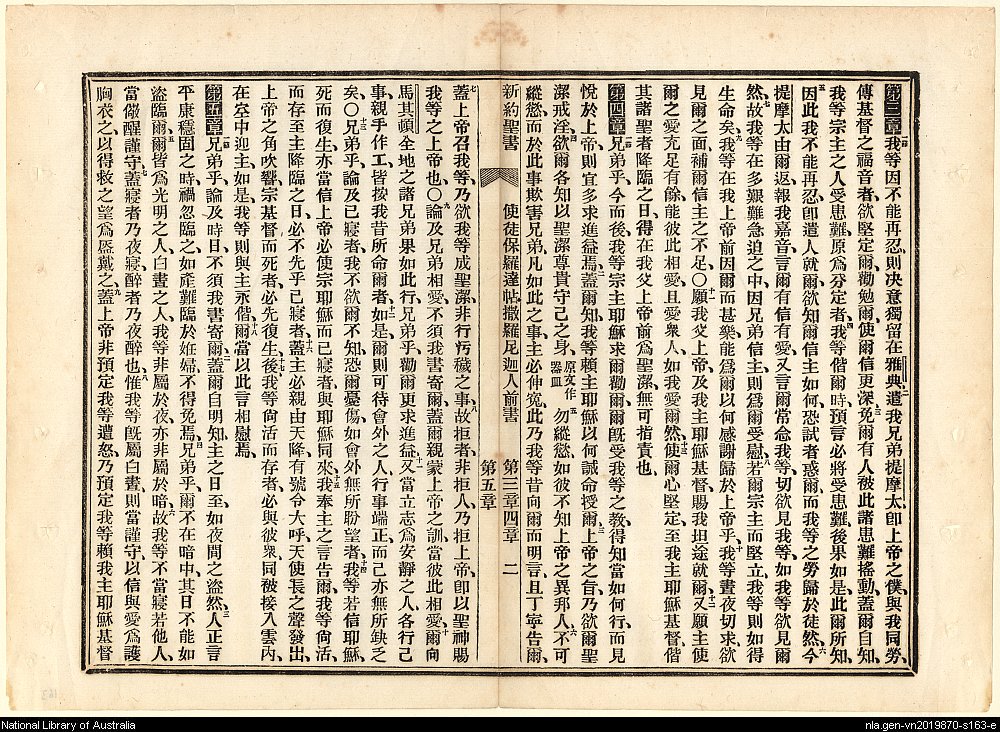 第三章我等因不能再忍則決意獨留在雅典遣我兄弟提摩太卽上帝之僕與我同勞
傳基督之福音者欲堅定爾勸勉爾使爾信更深免爾有人被此諸患難搖動蓋爾自知
我等宗主之人受患難原爲分定者我等偕爾時預言必將受患難後果如是此爾所知
因此我不能再忍卽遣人就爾欲知爾信主如何恐試者惑爾而我等之勞歸於徒然今
提摩太由爾返報我嘉音言爾有信有愛又言爾常念我等切欲見我等如我等欲見爾
然故我等在多艱難急迫之中因兄弟信主則爲爾受慰若爾宗主而堅立我等則如得
生命矣我等在我上帝前因爾而甚樂能爲爾以何感謝歸於上帝乎我等晝夜切求欲
見爾之面補爾信主之不足〇願我父上帝及我主耶穌基督賜我坦途就爾又願主使
爾之愛充足有餘能彼此相愛且愛衆人如我愛爾然使爾心堅定至我主耶穌基督偕
其諸聖者降臨之日得在我父上帝前爲聖潔無可指責也
第四章兄弟乎今而後我等宗主耶穌求爾勸爾爾旣受我等之教得知當如何行而見
悅於上帝則宜多求進益焉蓋爾知我等賴主耶穌以何誡命授爾上帝之旨乃欲爾聖
潔戒淫欲爾各知以聖潔尊貴守己之身原文作器皿勿縱慾如彼不知上帝之異邦人不可
縱慾而於此事欺害兄弟凡如此之事主必伸冤此乃我等昔向爾而明言且丁寧告爾
新約聖書 使徒保羅達帖撒羅尼迦人前書 第三章四章 二
第五章
蓋上帝召我等乃欲我等成聖潔非行汚穢之事故拒者非拒人乃拒上帝卽以聖神賜
我等之上帝也〇論及兄弟相愛不須我書寄爾蓋爾親蒙上帝之訓當彼此相愛爾向
馬其頓全地之諸兄弟果如此行兄弟乎勸爾更求進益又當立志爲安靜之人各行己
事親手作工皆按我昔所命爾者如是爾則可待會外之人行事端正而己亦無所缺乏
矣〇兄弟乎論及已寢者我不欲爾不知恐爾憂傷如會外無所盼望者我等若信耶穌
死而復生亦當信上帝必使宗耶穌而已寢者與耶穌同來我奉主之言告爾我等尙活
而存至主降臨之日必不先乎已寢者蓋主必親由天降有號令大呼天使長之聲發出
上帝之角吹響宗基督而死者必先復生後我等尙活而存者必與彼衆同被接入雲內
在空中迎主如是我等則與主永偕爾當以此言相慰焉
第五章兄弟乎論及時日不須我書寄爾蓋爾自明知主之日至如夜間之盜然人正言
平康穩固之時禍忽臨之如產難臨於妊婦不得免焉兄弟乎爾不在暗中其日不能如
盜臨爾爾皆爲光明之人白晝之人我等非屬於夜亦非屬於暗故我等不當寢若他人
當儆醒謹守蓋寢者乃夜寢醉者乃夜醉也惟我等旣屬白晝則當謹守以信與愛爲護
胸衣之以得救之望爲盔戴之蓋上帝非預定我等遭怒乃預定我等賴我主耶穌基督
National Library of Australia
nla.gen-vn2019870-s163-e